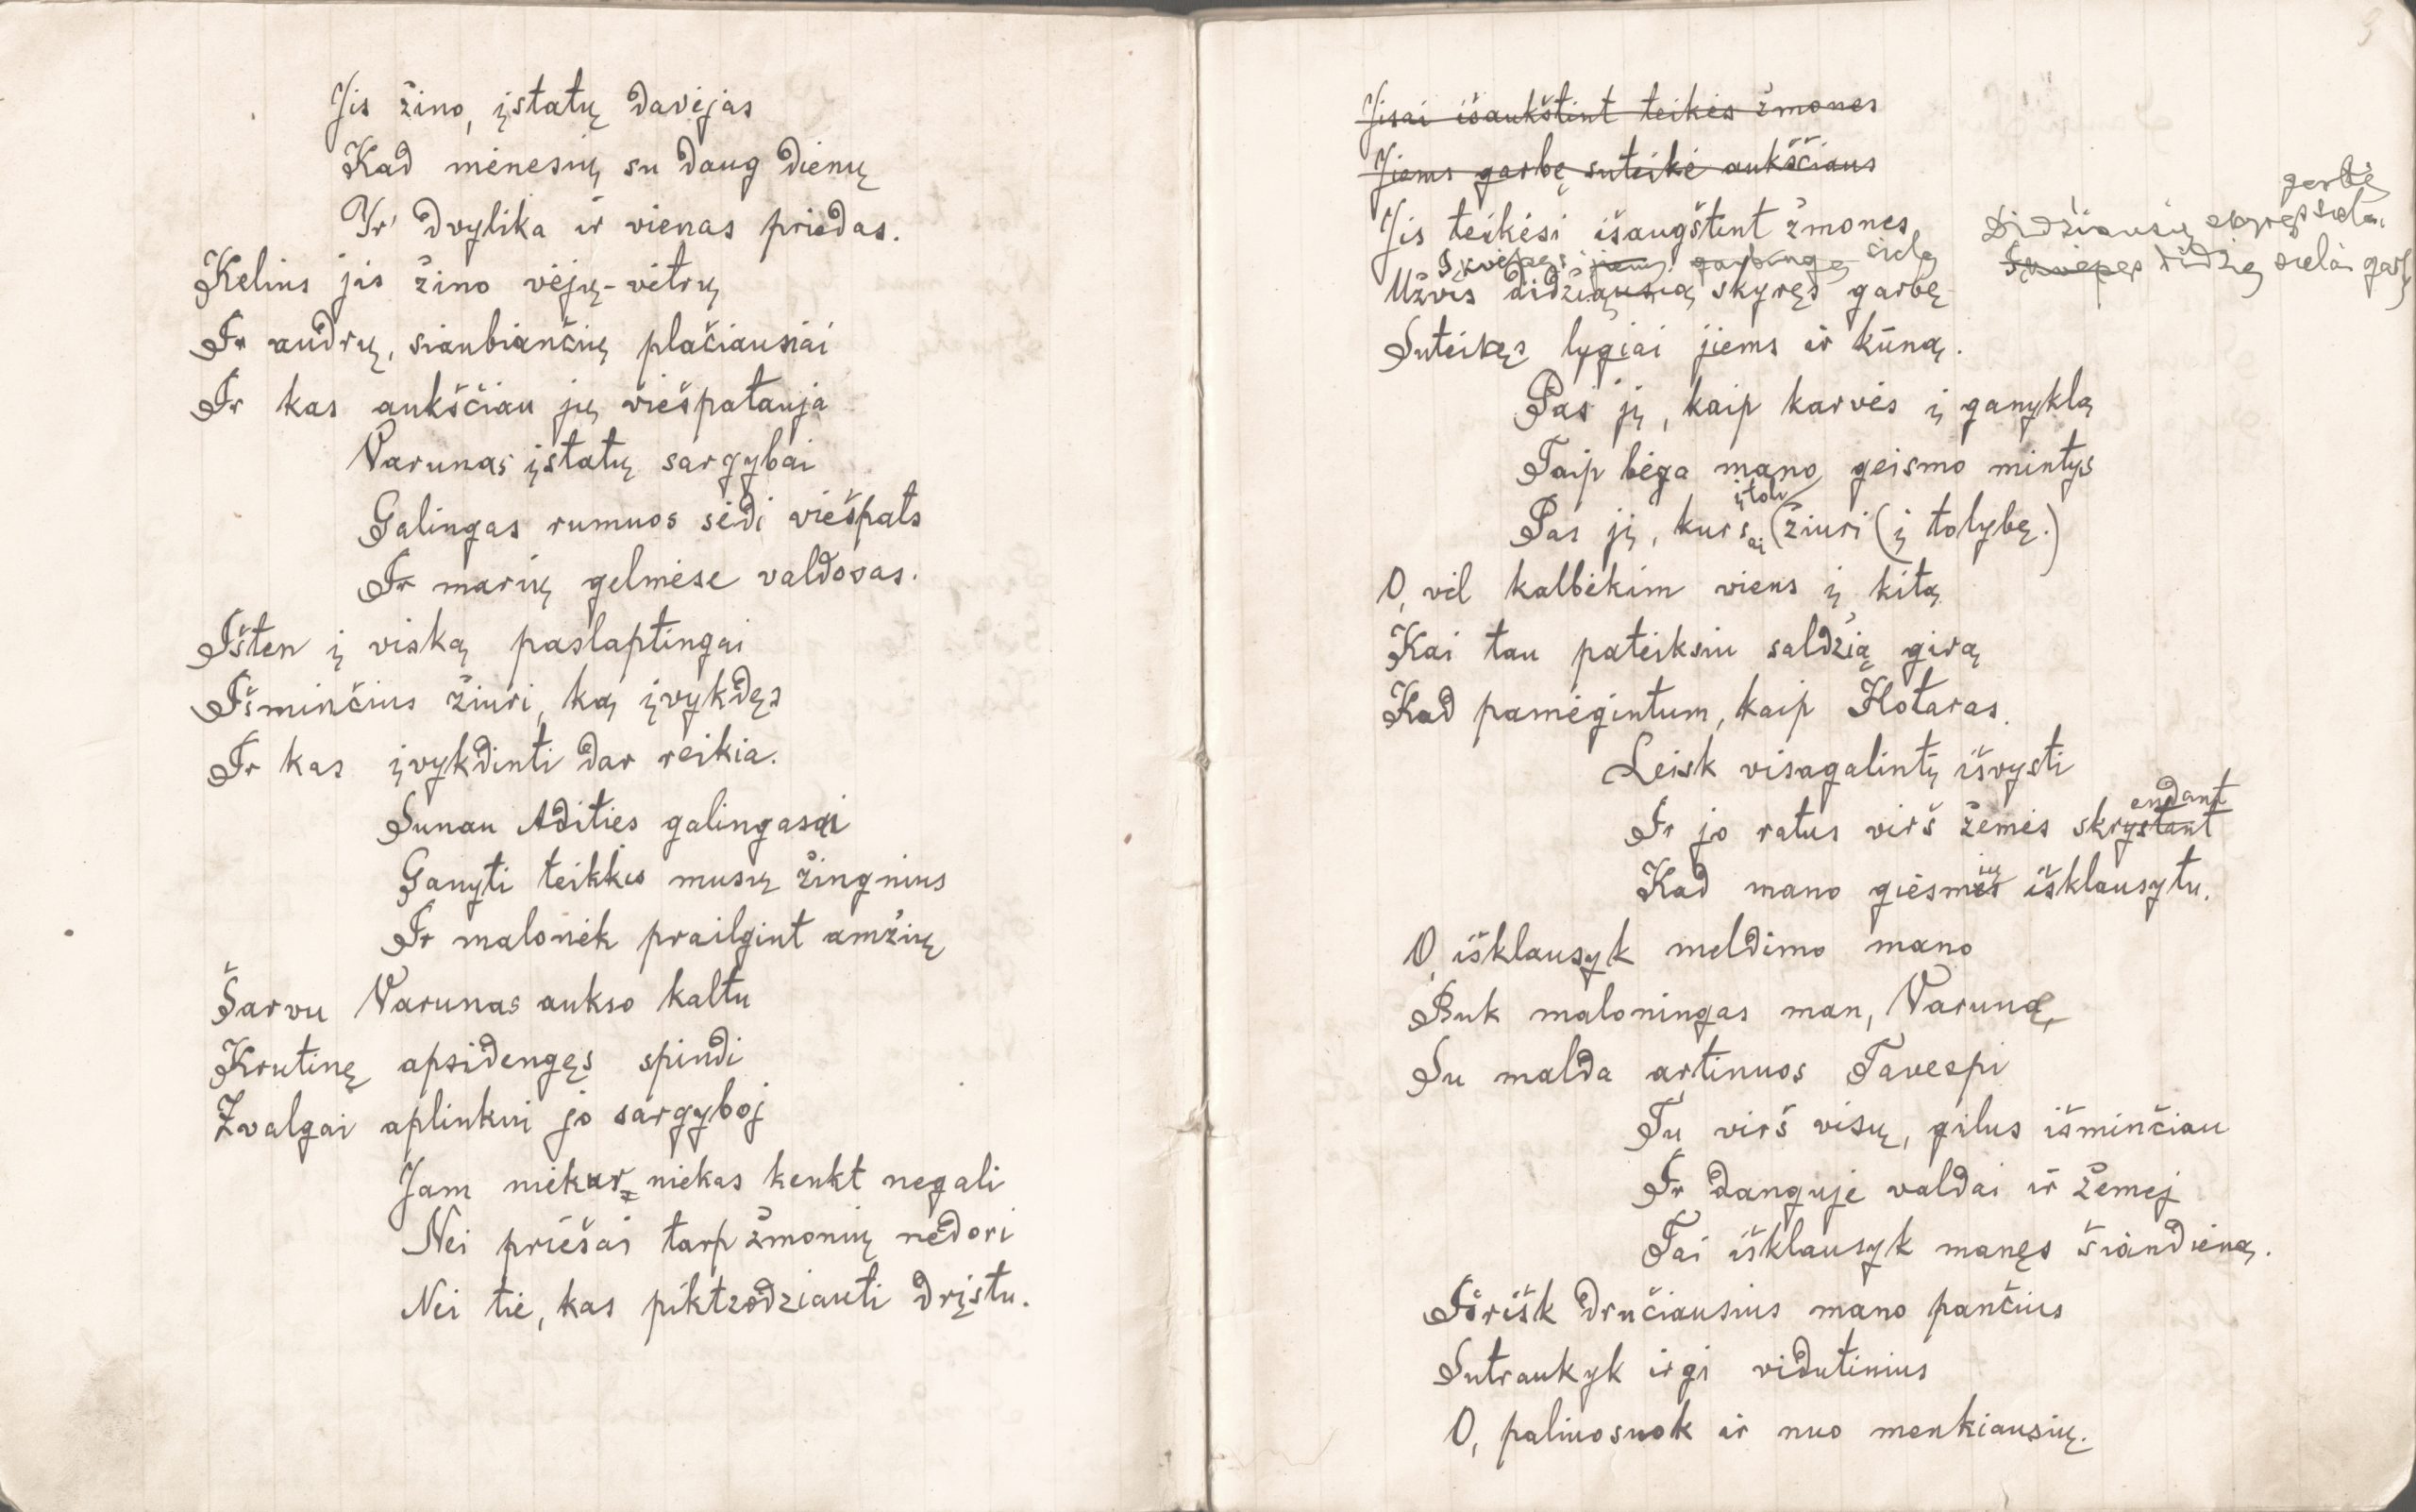 Jis žino, įstatų davėjas
Kad mėnesių su daug dienų
Yr' dvylika ir vienas priedas.
Kelius jis žino vėjų-vėtrų
Ir audrų, siaubiančių plačiausiai
Ir kas aukščiau jų viešpatauja
Varunas įstatų sargybai
Galingas rumuos sėdi viešpats
Ir marių gelmėse valdovas.
Išten į viską paslaptingai
Išminčius žiuri, ką įvykdęs
Ir kas įvykdinti dar reikia.
Sunau Adities galingasai
Ganyti teikkis musų žingnius
Ir malonėk prailgint amžių
Šarvu Varunas aukso kaltu
Krutinę apsidengęs spindi
Žvalgai aplinkui jo sargyboj
Jam niekur niekas kenkt negali
Nei priešai tarp žmonių nedori
Nei tie, kas piktžodžiauti drįstu.
Jisai išaukštint teikės žmones
Jiems garbę suteikė aukščiaus
garbę
Jis teikėsi išaugštint žmones
Didžiausių skyręs sielai
Įkvėpęs jiems garbingą sielą
Įkvėpęs didžią sielai garbę
Užvis didžiausią skyręs garbę
Suteikęs lygiai jiems ir kūną.
Pas jį, kaip karvės į ganyklą
Taip bėga mano geismo mintys
į tolį
Pas jį, kursai (žiuri (į tolybę.)
O, vėl kalbėkim viens į kitą
Kai tau pateiksiu saldžią girą
Kad pamėgintum, kaip Hotaras.
Leisk visagalintį išvysti
endant
Ir jo ratus virš žemės skrystant
ių
Kad mano giesmės išklausytu.
O, išklausyk meldimo mano
Buk maloningas man, Varuna,
Su malda artinuos Tavespi
Tu virš visų, gilus išminčiau
Ir danguje valdai ir žemėj
Tai išklausyk manęs šiandieną.
Išrišk dručiausius mano pančius
Sutraukyk irgi vidutinius
O, paliuosuok ir nuo menkiausių.